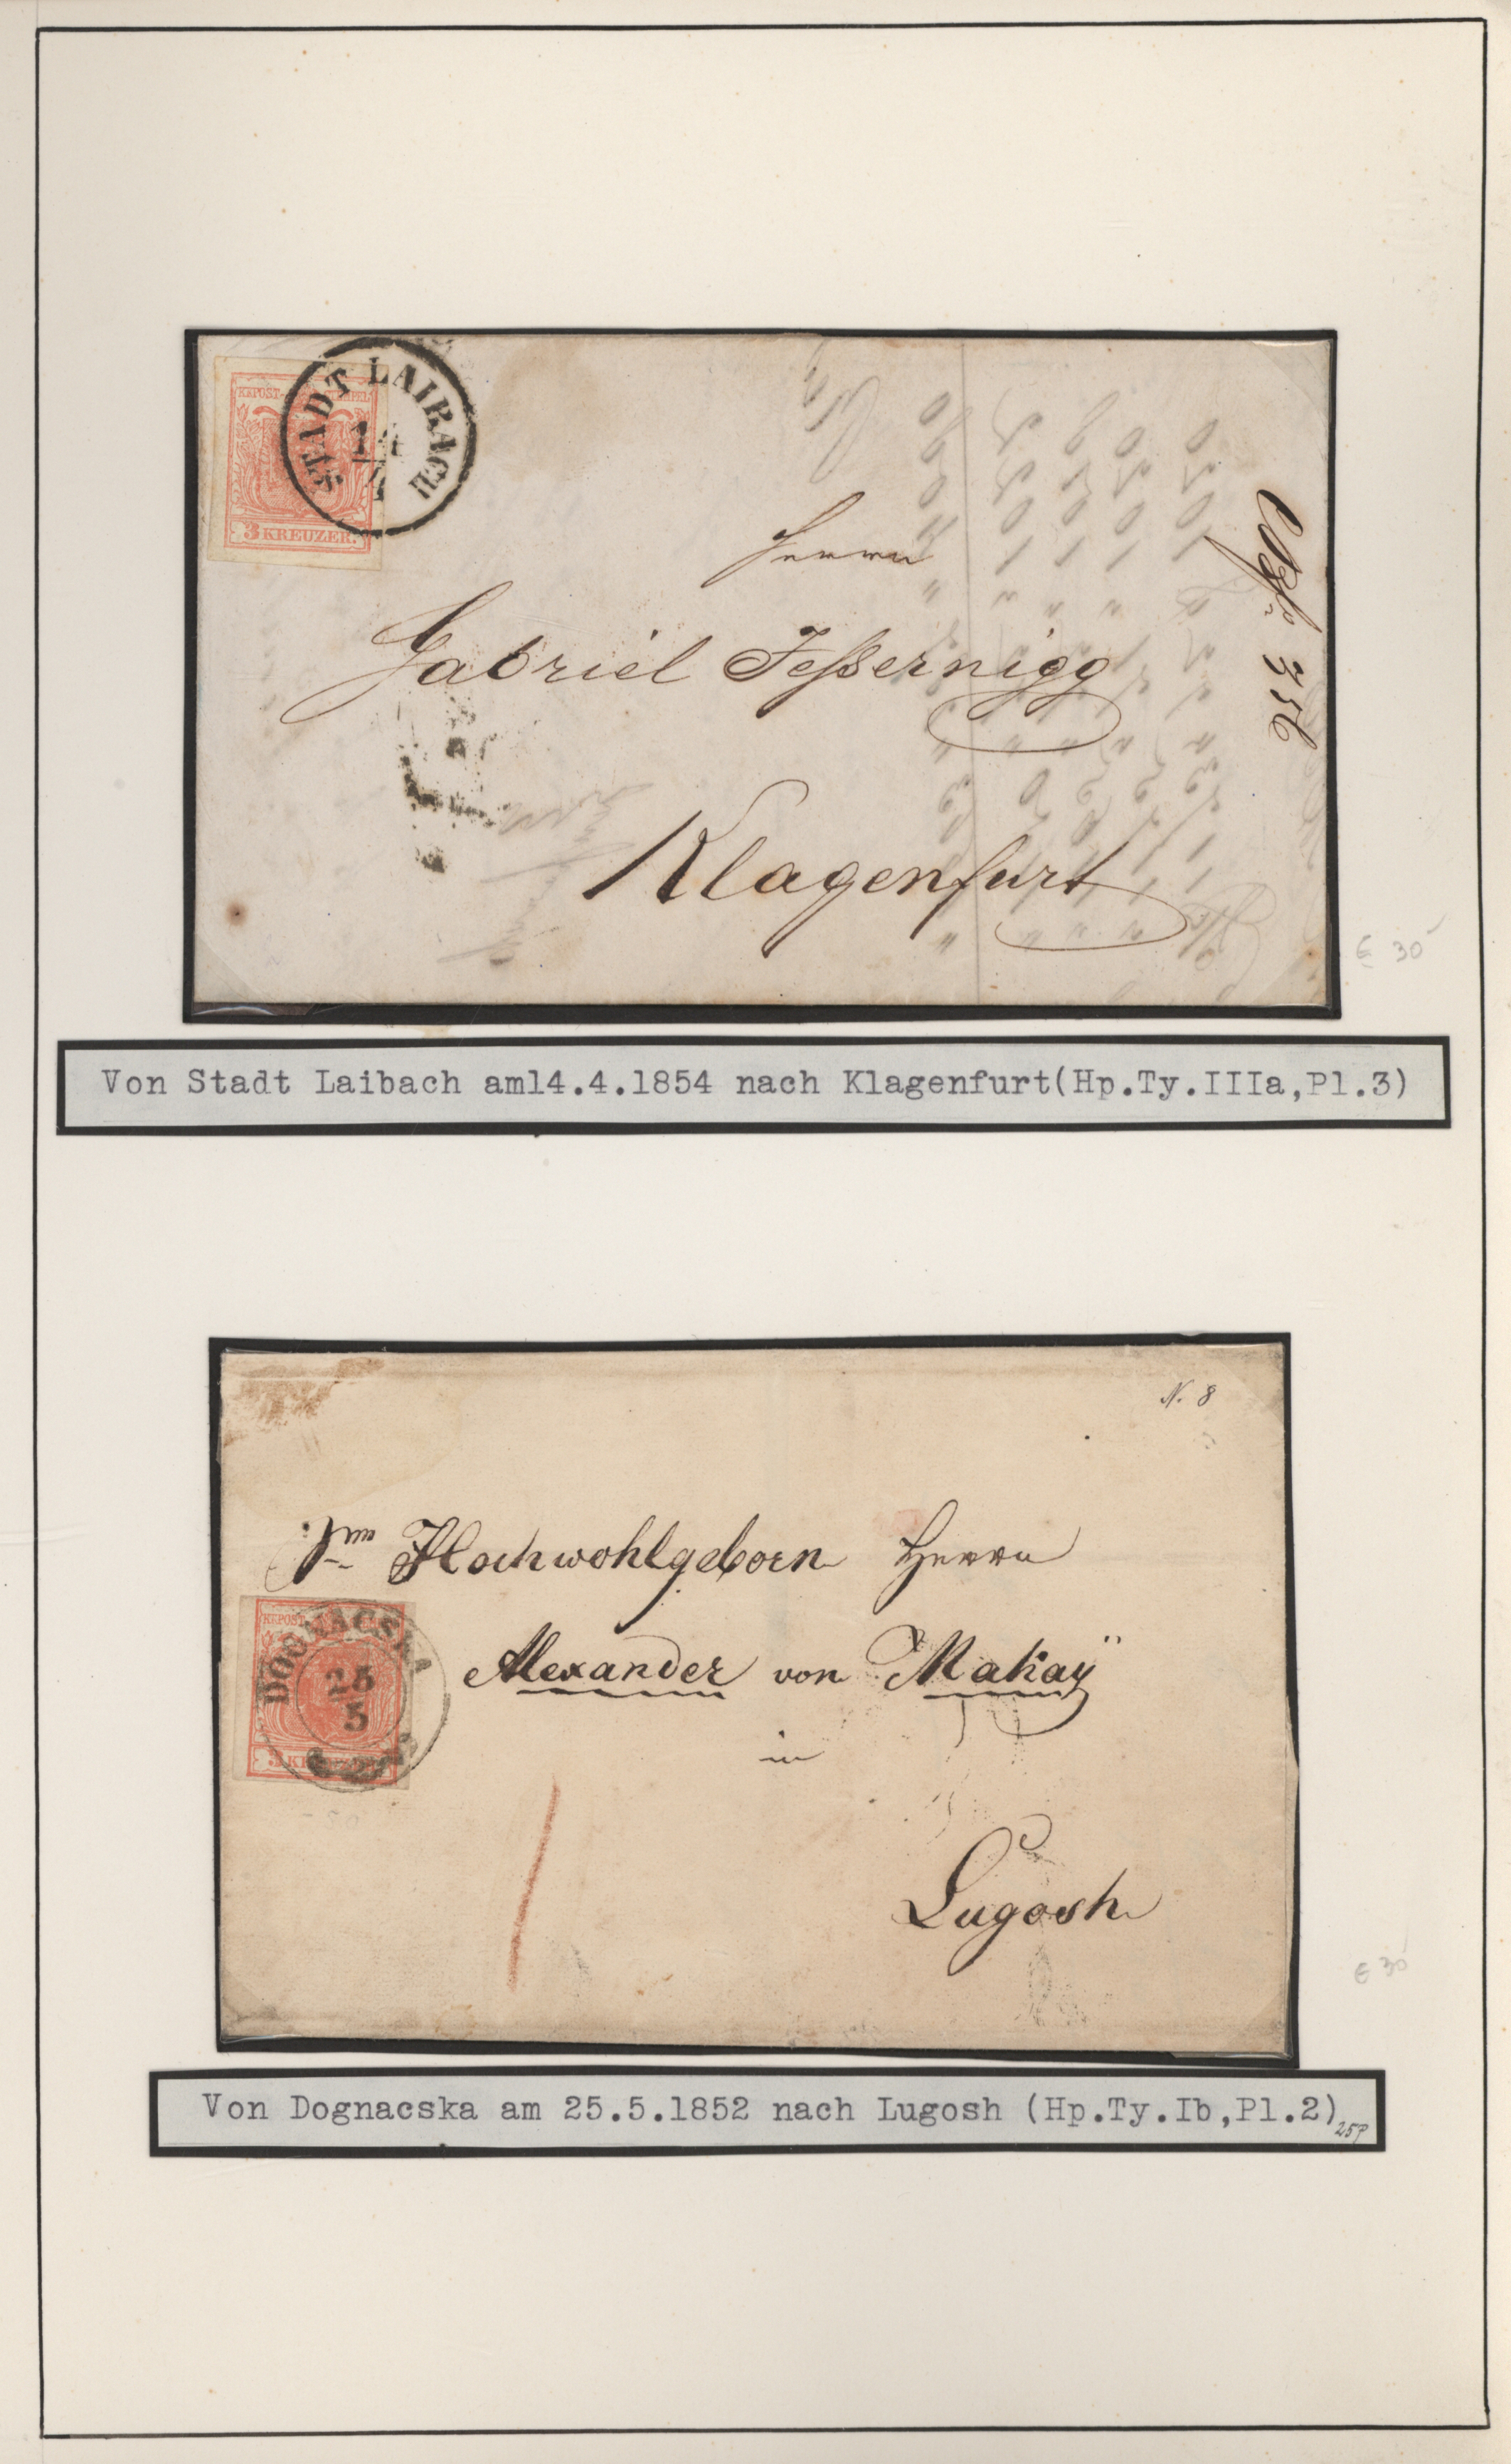 KKPOST-STEMPEL
STADT LAIBACH
14
4
3 KREUZER.
Herrn
Gabriel Jeßernigg
Klagenfurt
356
€ 30
Von Stadt Laibach am14.4.1854 nach Klagenfurt(Hp.Ty.IIIa,Pl.3)
N. 8
Hochwohlgeborn Herrn
KKPOST-STEMPEL
DOGNACSKA
25
5
3 KREUZER
Alexander von Makaÿ
in
Lugosh
€ 30
Von Dognacska am 25.5.1852 nach Lugosh (Hp.Ty.Ib,Pl.2)
25P